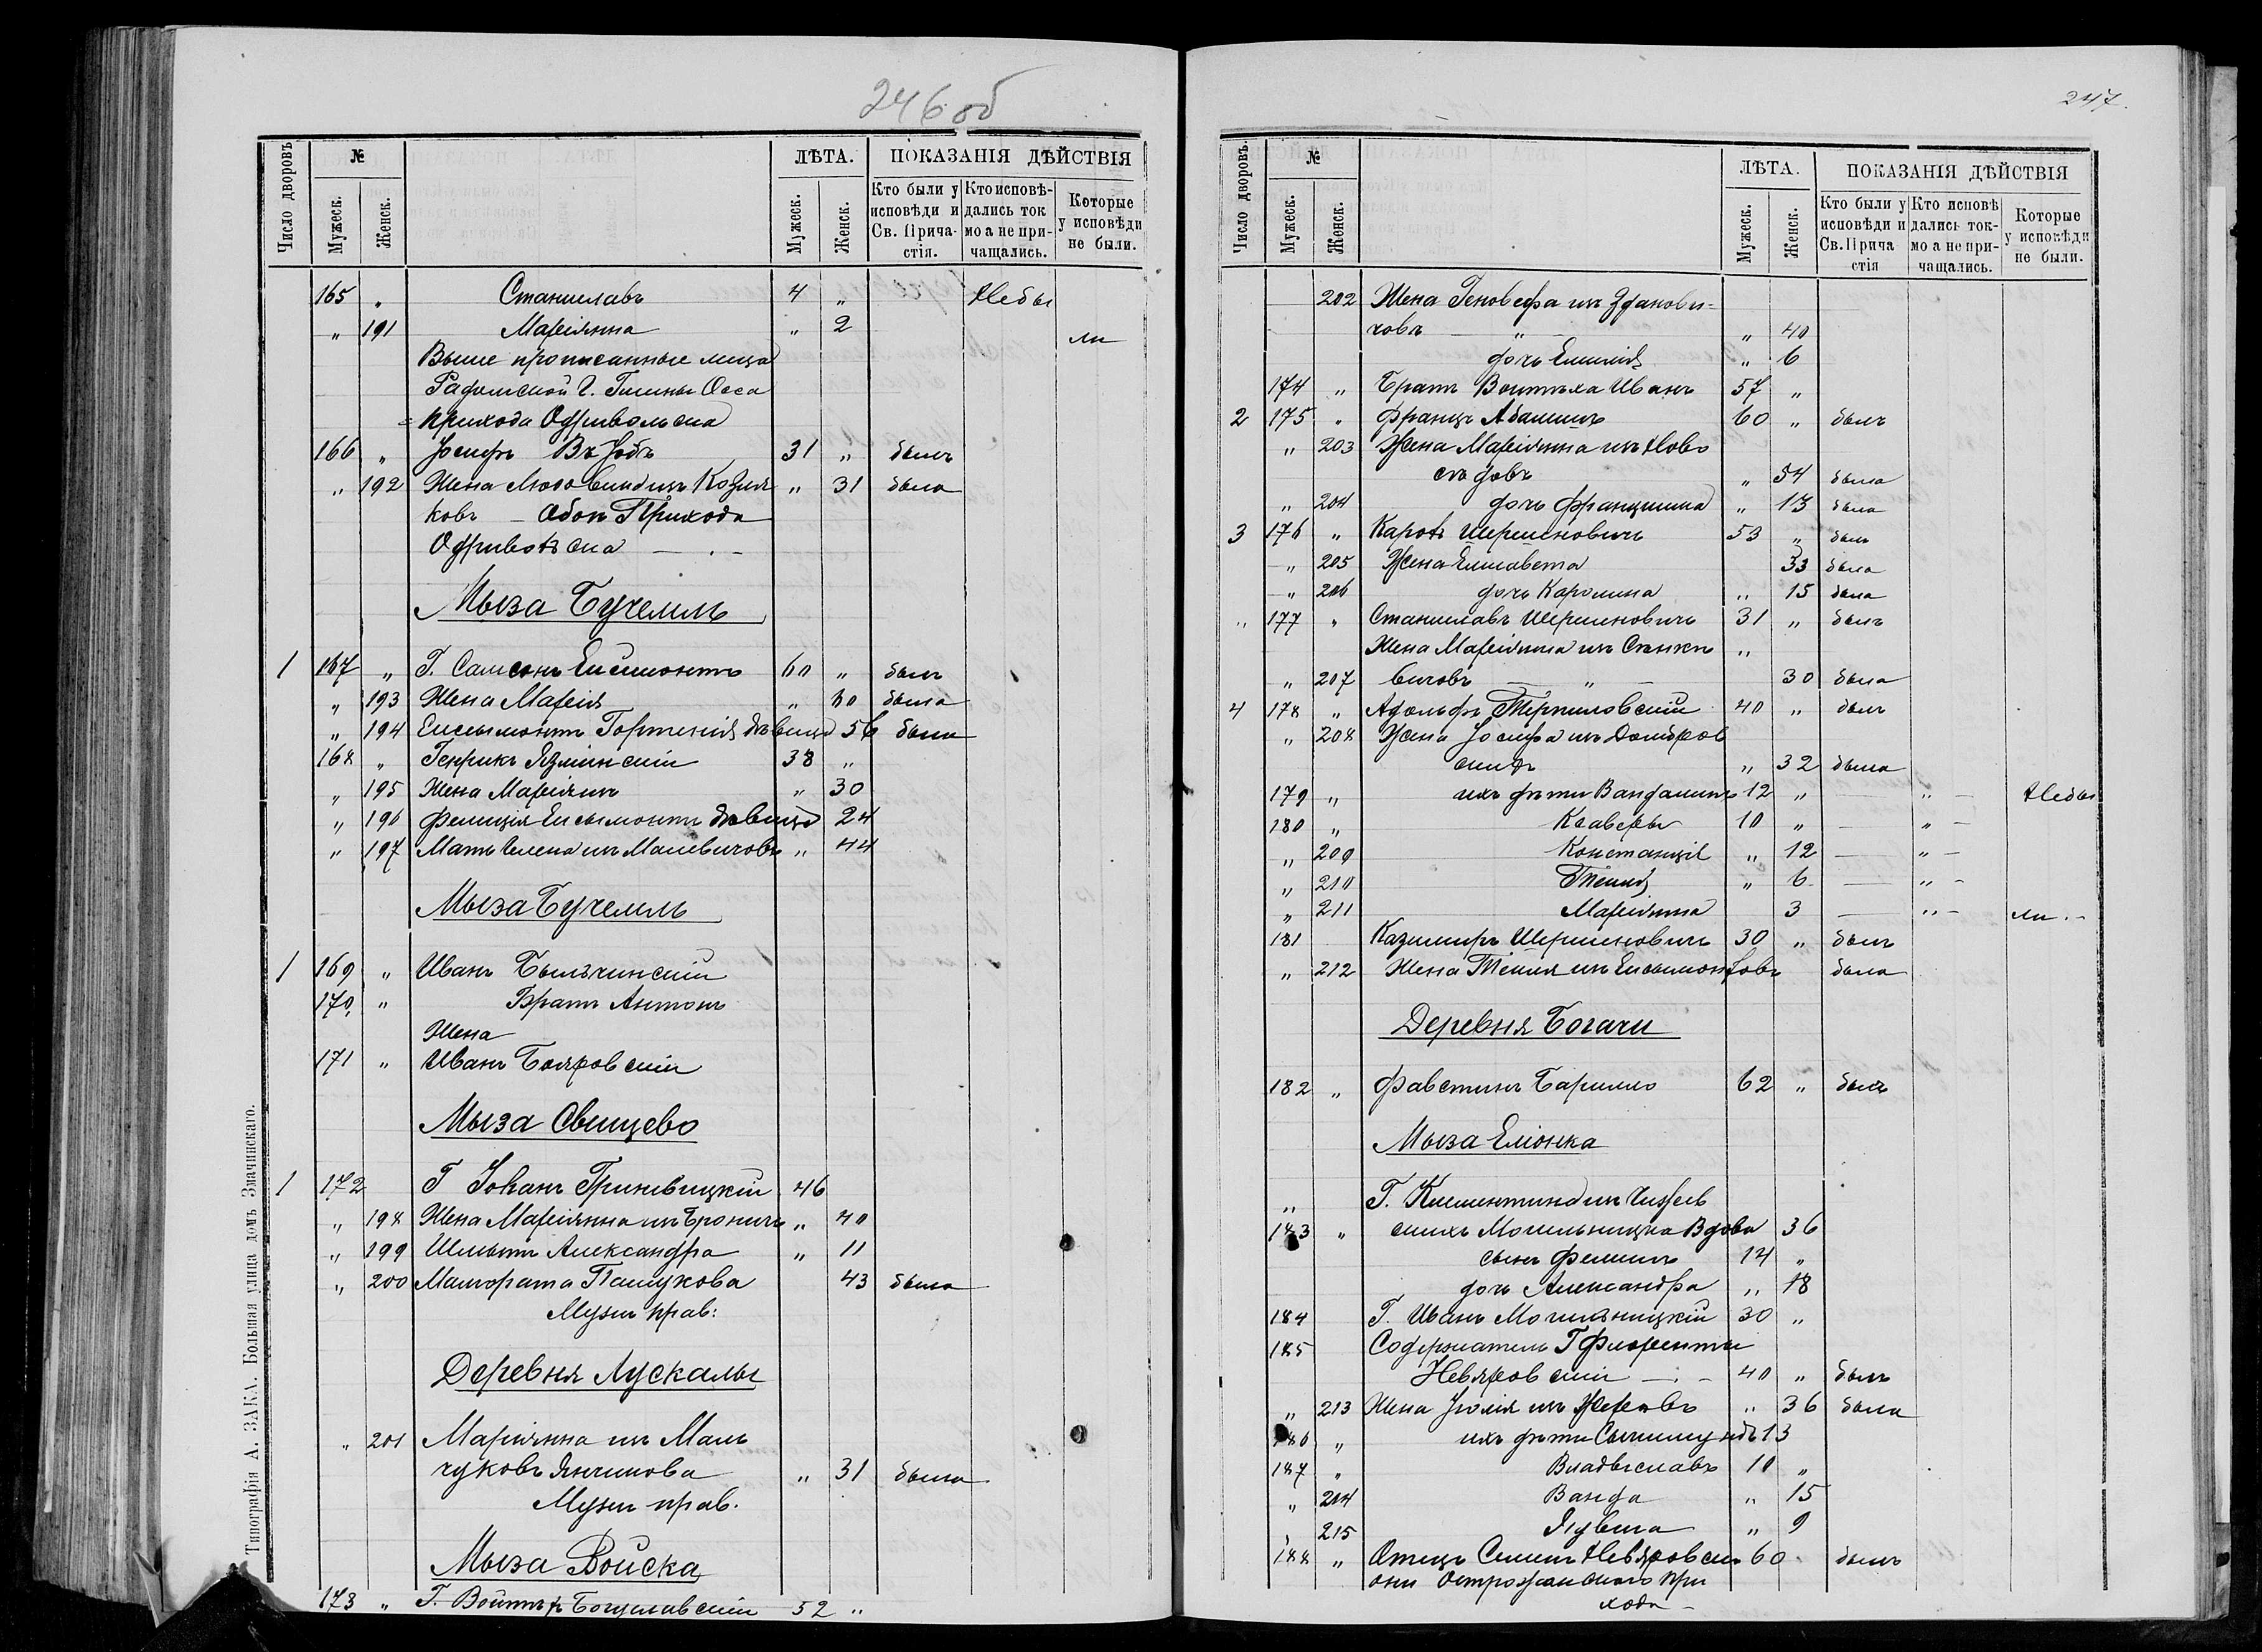 246 об
Число дворовъ
№
Мужеск.
Женск.
ЛѢТА.
Мужеск.
Женск.
ПОКАЗАНІЯ ДѢЙСТВІЯ
Кто были у исповѣди и Св. Прича-стія.
Кто исповѣ-дались ток мо а не при-чащались.
Которые у исповѣди не были.
165 „ Станиславъ 4 „ Небы
„ 191 Маріянна „ 2 ли
Выше прописанные лица
Радомской Г. Гмины Осса
прихода Одривольска
166 „ Іосифъ 31 „ былъ
„ 192 Жена Людовика изъ Козля „ 31 была
ковъ Прихода
Одривольска
Мыза Бучемль
1 167 „ Г. Самсонъ Еисмонтъ 60 „ былъ
„ 193 Жена Марія „ 60 была
„ 194 Еисымонтъ Гортензія дѣвица 56 была
168 „ Генрикъ Язминскій 38 „
„ 195 Жена Маріянъ „ 30
„ 196 Фелиція Еисымонтъ дѣвица 24
„ 197 Мать Гелена изъ Малевичовъ „ 44
Мыза Бучемль
1 169 „ Иванъ Былчинскій
170 „ Братъ Антонъ
Жена
171 „ Иванъ Бояровскій
Мыза Свищево
1 172 Г Іоhанъ Гриневицкій 46
„ 198 Жена Маріянна изъ Броничъ „ 40
„ 199 Александра „ 11
„ 200 Малгората Пашукова 43 была
Мужъ прав:
Деревня Лускалы
„ 201 Маріянна изъ Маль
чуковъ Янчикова „ 31 была
Мужъ прав.
Мыза Войска
173 „ Г. Войтѣхъ Богуславскій 52 „
Типографія А. ЗАКА. Большая улица домъ Змачинскаго.
247.
Число дворовъ.
№
Мужеск.
Женск.
ЛѢТА.
Мужеск.
Женск.
ПОКАЗАНІЯ ДѢЙСТВІЯ
Кто были у исповѣди и Св. Прича стія
Кто исповѣ дались ток-мо а не при-чащались.
Которые у исповѣди не были.
202 Жена Геновефа изъ Здανови-
човъ „ „ 40
дочь Емилія „ 6
174 „ Братъ Войтѣха Иванъ 57 „
2 175 „ Францъ Адамчикъ 60 „ былъ
„ 203 Жена Маріянна изъ Ново
садовъ „ 54 была
„ 204 дочь Францишка „ 13 была
3 176 „ Кароль Шершеновичъ 53 „ былъ
„ 205 Жена Елисавета 33 была
„ 206 дочь Каролина „ 15 была
„ 177 „ Станиславъ Шершеновичъ 31 „ былъ
Жена Маріянна изъ Станке „
„ 207 вичовъ „ 30 была
4 178 „ Адольфъ Терпиловскій 40 „ былъ
„ 208 Жена Іосифа изъ Домбров
скихъ „ 32 была
179 „ ихъ дѣти Вандалинъ 12 „ — „ — Небы
180 „ Ксаверы 10 „ — „ —
„ 209 Констанція „ 12 — „ —
„ 210 Текля „ 6 — „ —
„ 211 Маріянна 3 — „ — ли.-
181 Казимиръ Шершеновичъ 30 „ былъ
„ 212 Жена Текля изъ Еисымонтовъ была
Деревня Богачи
182 „ Фавстинъ Барилло 62 „ былъ
Мыза Еліонка
„ Г. Клементина изъ
183 „ скихъ Могильницка Вдова 36
сынъ Феликсъ 14 „
дочь Александра „ 18
184 Г. Иванъ Могильницкій 30 „
185 Содержатель Г Флорентий
Невяровскій 40 „ былъ
„ 213 Жена Юлія изъ „ 36 была
186 „ ихъ дѣти Сыгизмундъ 13
187 „ Владыславъ 10 „
„ 214 Ванда „ 15
„ 215 Ядвига „ 9
188 „ Отецъ Семенъ Невяровски 60 былъ
они Острожанского при
хода